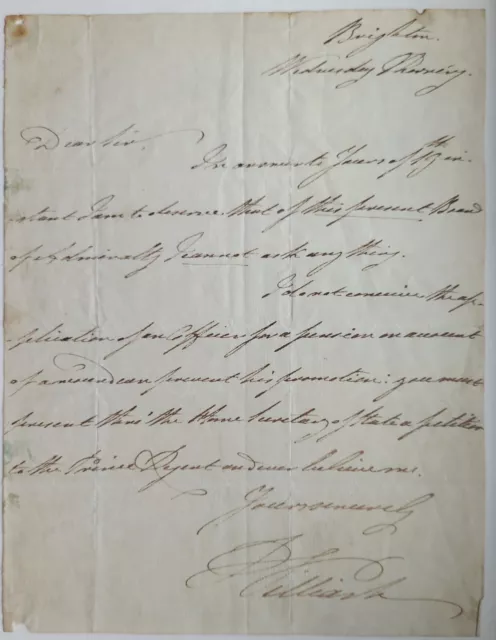 Brighton.
Wednesday Morning.
Dear Sir.
In answer to Yours of 19th in-
stant I am to observe that of this present Board
of Admiralty I cannot ask any thing.
I do not conceive the ap-
plication of an Officer for a pension on account
of a wound can prevent his promotion: you must
present thro' the Home Secretary of State a petition
to the Prince Regent and ever believe me.
Yours sincerely
William